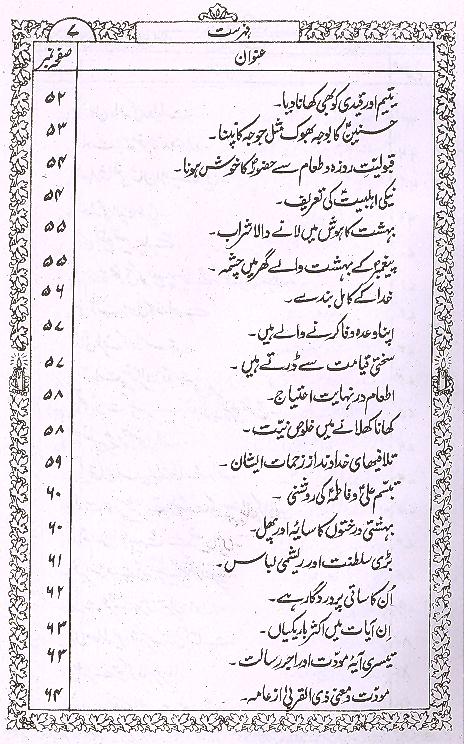 فہرست ۷
عنوان صفحہ نمبر
یتیم اور قیدی کو بھی کھانا دیا۔ ۵۲
حسنینؑ کا بوجہ بھوک مثل جوجہ کانپنا۔ ۵۳
قبولیت روزہ و طعام سے حضورؐ کا خوش ہونا۔ ۵۴
نیکی اہلبیت کی تعریف۔ ۵۴
بہشت کا ہوش میں لانے والا شراب۔ ۵۵
پیغمبرؐ کے بہشت والے گھر میں چشمہ۔ ۵۵
خدا کے کامل بندے۔ ۵۶
اپنا وعدہ وفا کرنے والے ہیں۔ ۵۷
سختی قیامت سے ڈرتے ہیں۔ ۵۷
اطعام در نہایت احتیاج۔ ۵۸
کھانا کھلانے میں خلوص نیت۔ ۵۸
تلافیھای خداوند از زحمات ایشان۔ ۵۹
تبسم علیؑ و فاطمہؑ کی روشنی۔ ۶۰
بہشتی درختوں کا سایہ اور پھل۔ ۶۰
بڑی سلطنت اور ریشمی لباس۔ ۶۱
اُن کا ساقی پروردگار ہے۔ ۶۲
اِن آیات میں اکثر باریکیاں۔ ۶۳
تیسری آیۂ مودت اور اجر رسالت۔ ۶۳
مودت و معنی ذی القربیٰ از عامہ۔ ۶۴